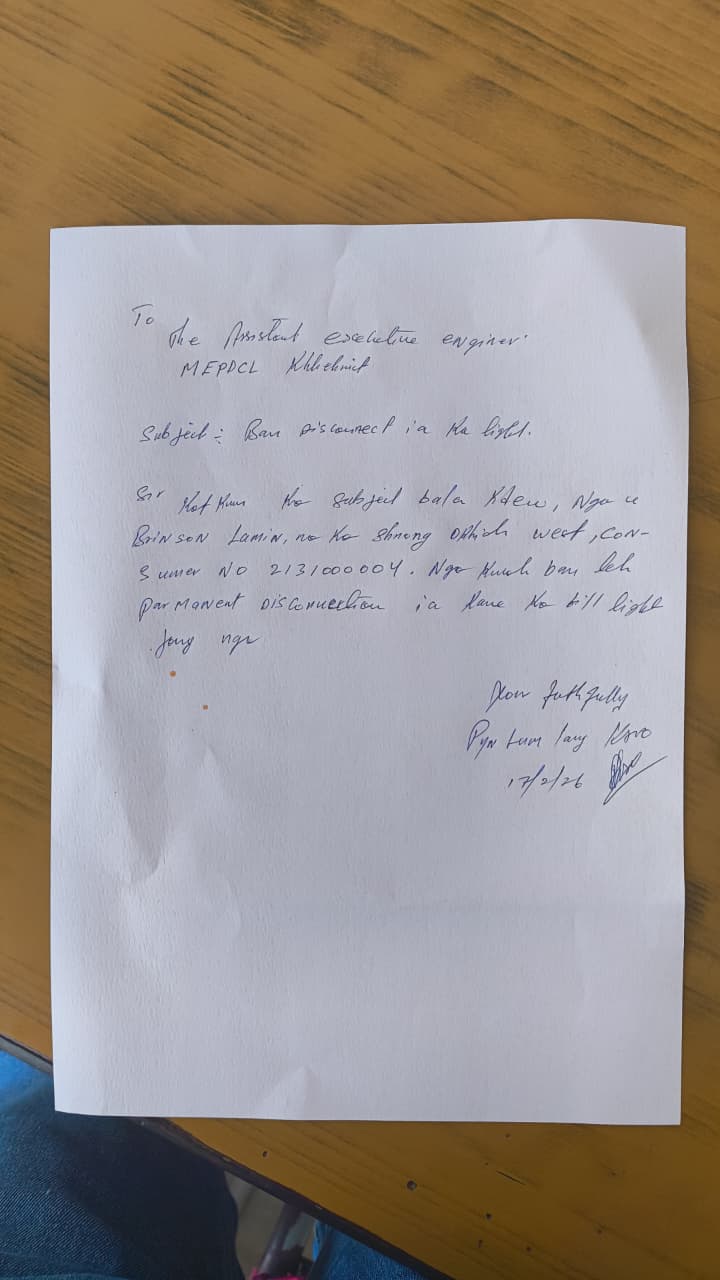 To
The Assistant executive enginer.
MEPDCL Khliehriat
Subject :- Ban Disconnect ia Ka light.
Sir Kat Kum Ka Subject bala Kdew, Nga u
Brinson Lamin, na Ka Shnong west, Con-
sumer No 2131000004. Nga Kwah ban leh
parmanent Disconnection ia Kane Ka bill light
Jong nga
faithfully
Pyn Lang
17/2/26